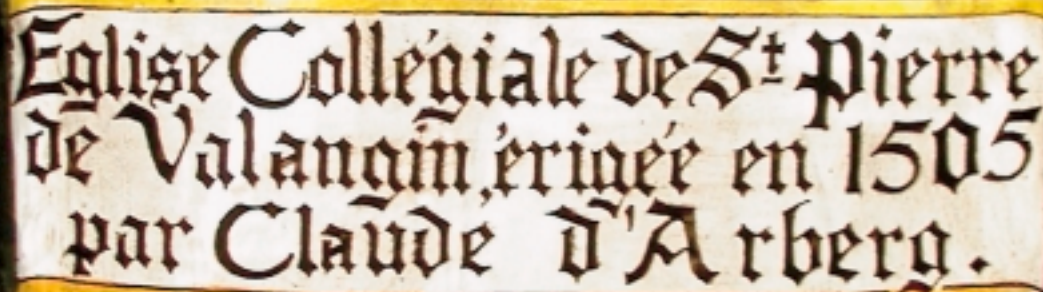 Eglise Collégiale de St Pierre
de Valangin, érigée en 1505
par Claude d'Arberg.